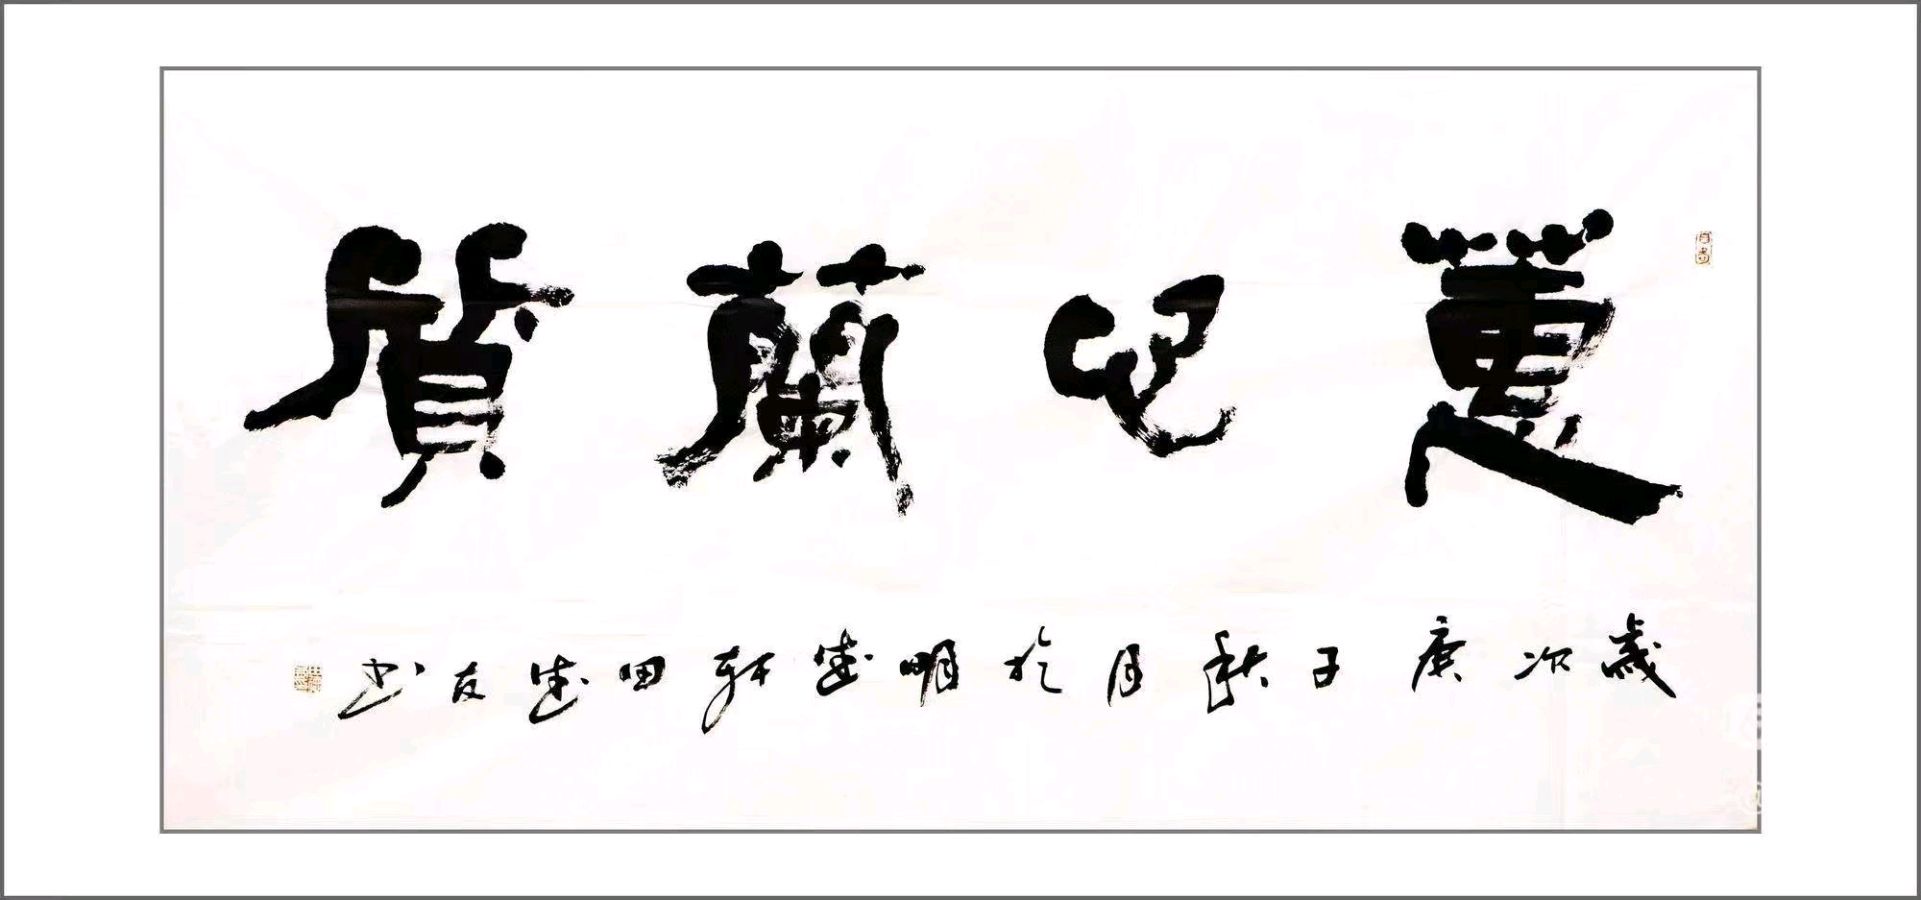 蕙心蘭質
歲次庚子秋月於明德軒田德友书